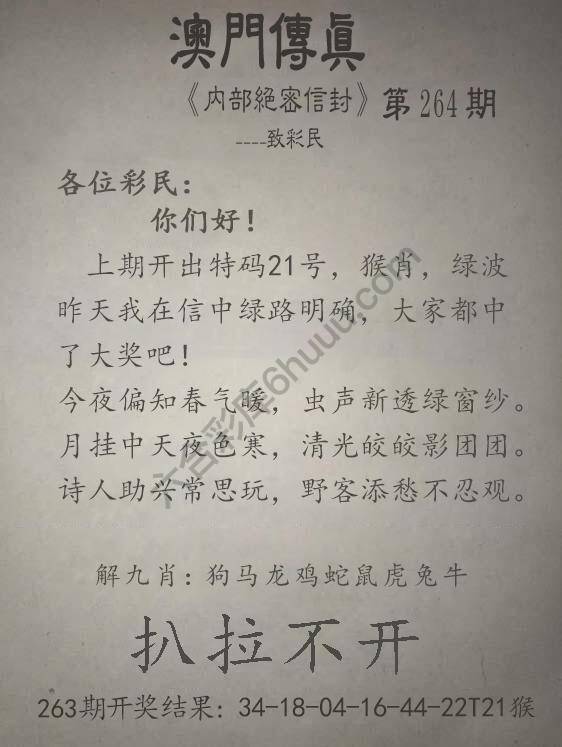 澳門傳真
《内部絕密信封》第264期
----致彩民
各位彩民：
你们好！
上期开出特码21号，猴肖，绿波
昨天我在信中绿路明确，大家都中
了大奖吧！
今夜偏知春气暖，虫声新透绿窗纱。
月挂中天夜色寒，清光皎皎影团团。
诗人助兴常思玩，野客添愁不忍观。
解九肖：狗马龙鸡蛇鼠虎兔牛
扒拉不开
263期开奖结果：34-18-04-16-44-22T21猴
六合彩库6huuu.com